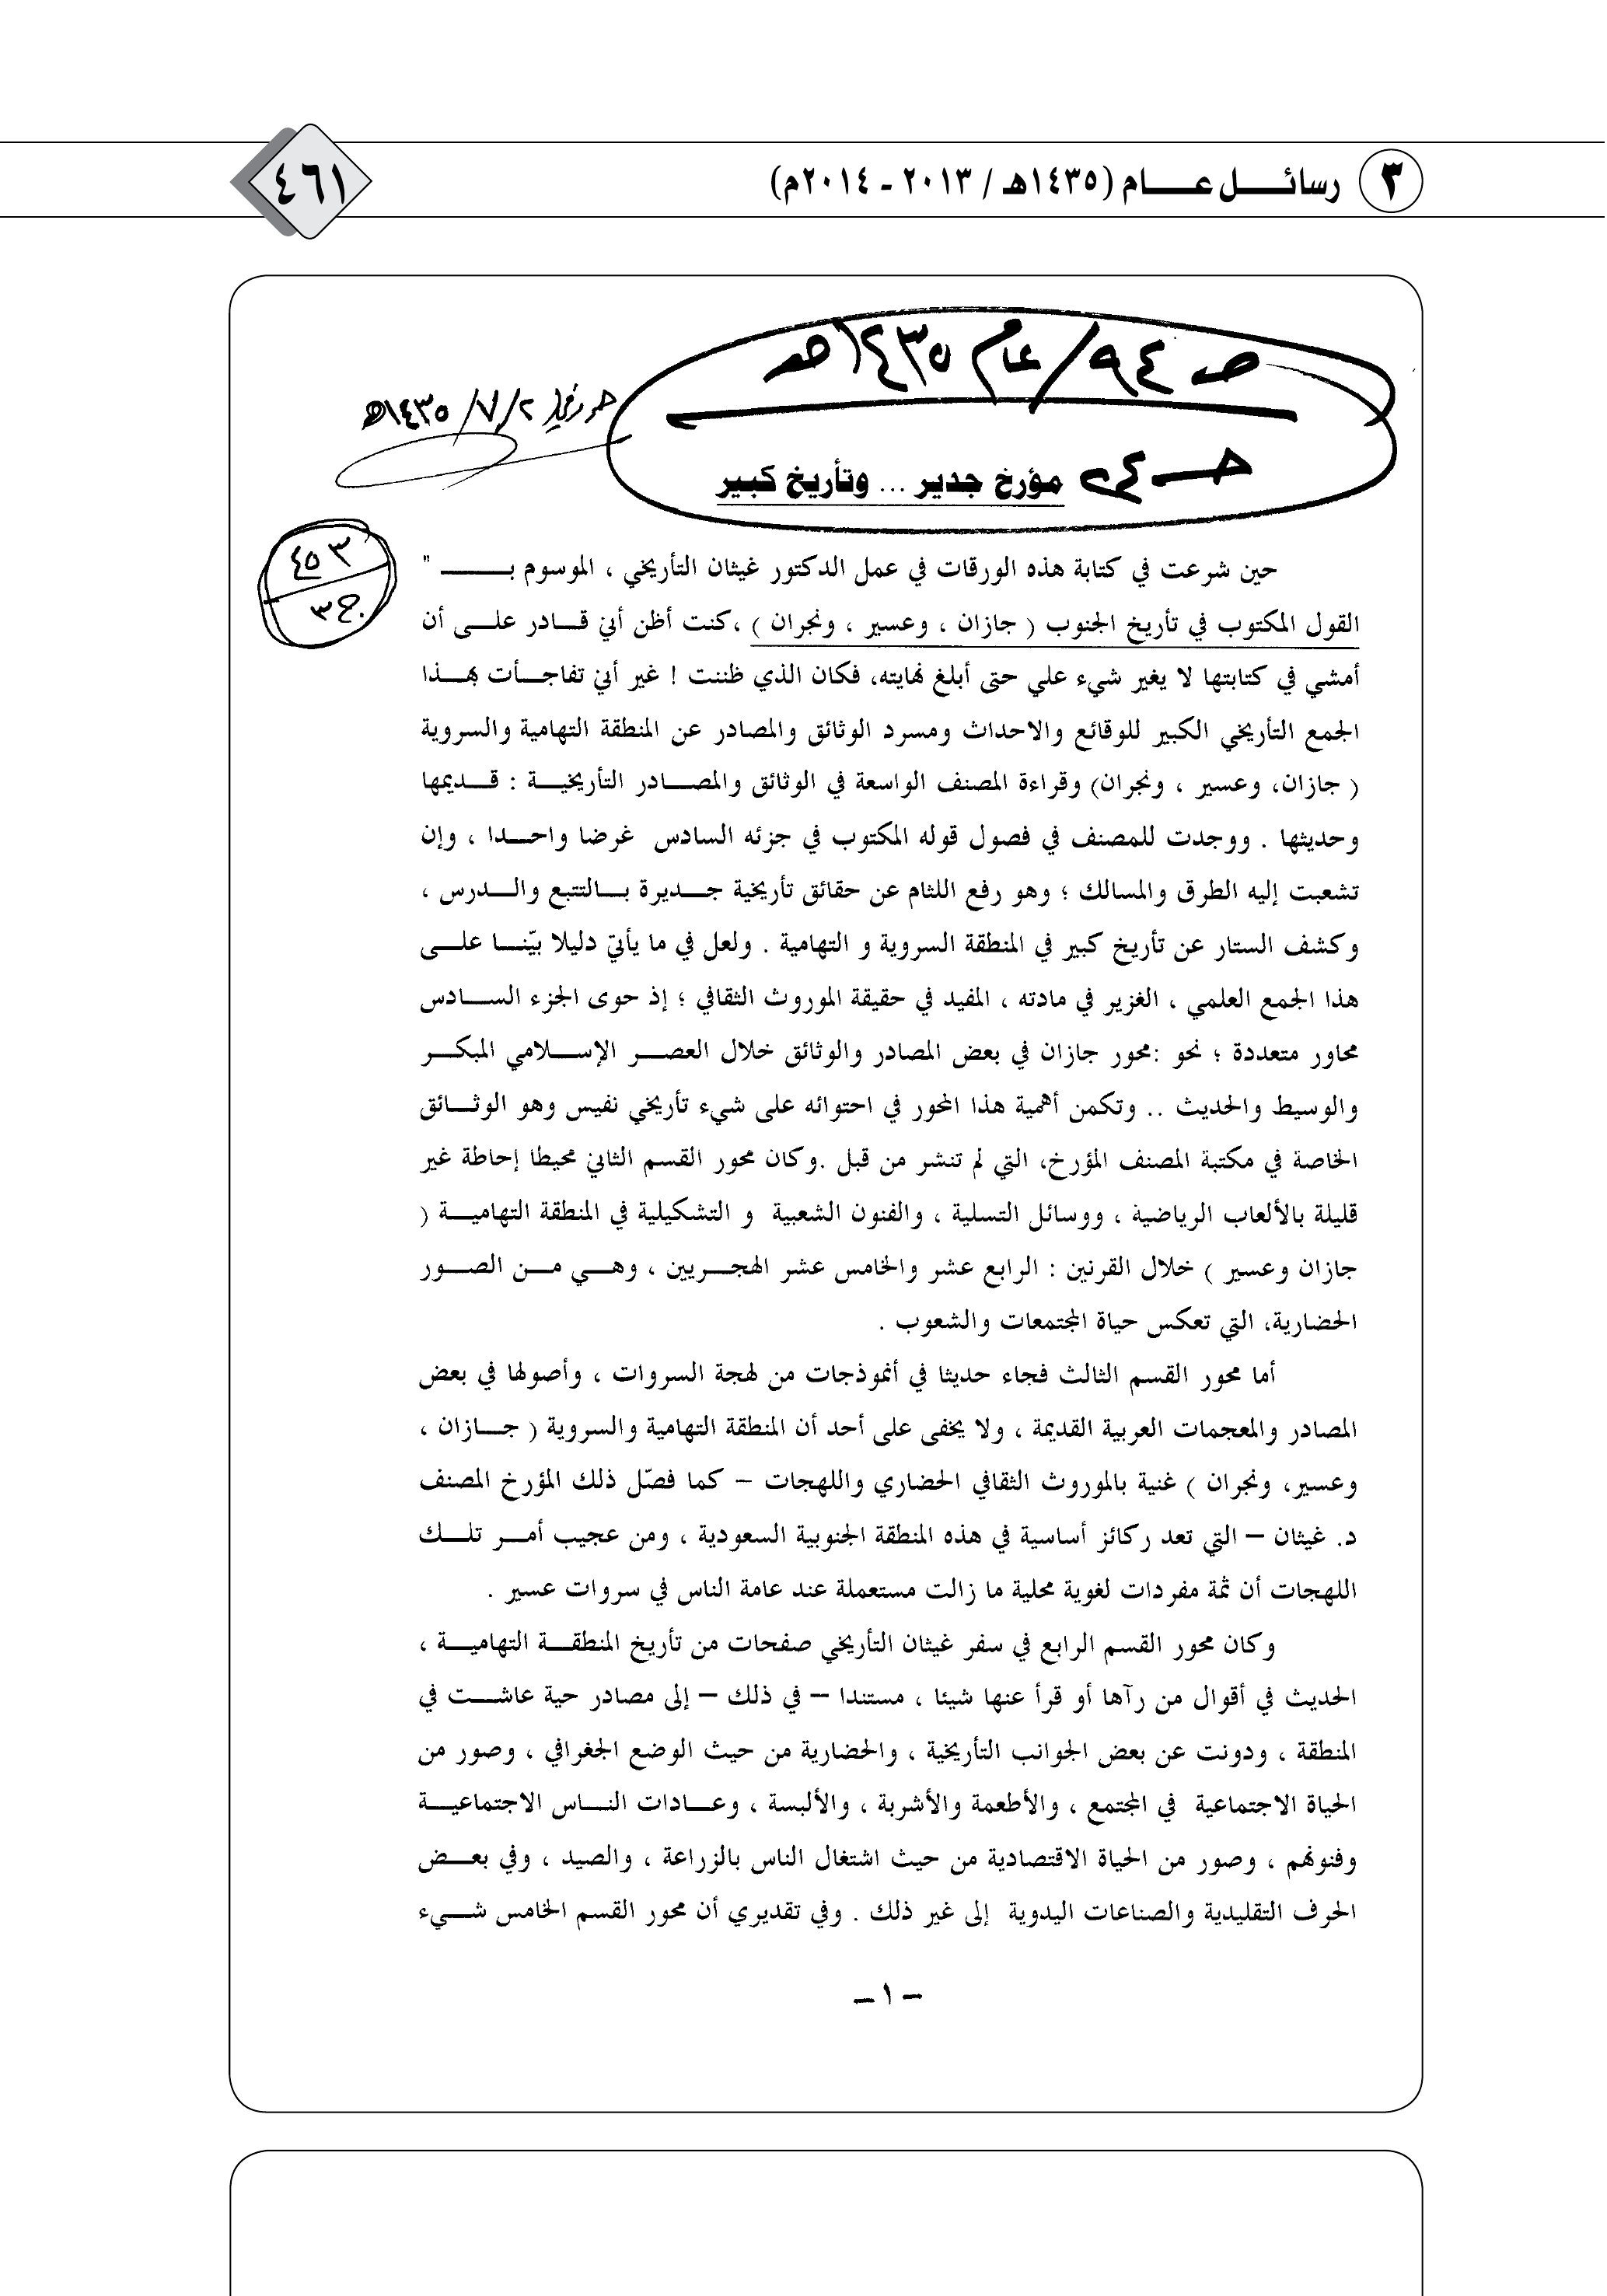 ٣ رسائـــل عـــام (١٤٣٥هـ / ٢٠١٣ - ٢٠١٤م)
٤٦١
صـ ٩٤/ عام ١٤٣٥هـ
٢/ ٧/ ١٤٣٥هـ
مؤرخ جدير ... وتأريخ كبير
٣ ٤٥
ج ٣
حين شرعت في كتابة هذه الورقات في عمل الدكتور غيثان التأريخي ، الموسوم بـــــ "
القول المكتوب في تأريخ الجنوب ( جازان ، وعسير ، ونجران ) ،كنت أظن أني قـــادر علـــى أن
أمشي في كتابتها لا يغير شيء علي حتى أبلغ نهايته، فكان الذي ظننت ! غير أني تفاجـــأت بهـــذا
الجمع التأريخي الكبير للوقائع والاحداث ومسرد الوثائق والمصادر عن المنطقة التهامية والسروية
( جازان، وعسير ، ونجران) وقراءة المصنف الواسعة في الوثائق والمصـــادر التأريخيـــة : قـــديمها
وحديثها . ووجدت للمصنف في فصول قوله المكتوب في جزئه السادس غرضا واحـــدا ، وإن
تشعبت إليه الطرق والمسالك ؛ وهو رفع اللثام عن حقائق تأريخية جـــديرة بـــالتتبع والـــدرس ،
وكشف الستار عن تأريخ كبير في المنطقة السروية و التهامية . ولعل في ما يأتي دليلا بيّنـــا علـــى
هذا الجمع العلمي ، الغزير في مادته ، المفيد في حقيقة الموروث الثقافي ؛ إذ حوى الجزء الســـادس
محاور متعددة ؛ نحو :محور جازان في بعض المصادر والوثائق خلال العصـــر الإســـلامي المبكـــر
والوسيط والحديث .. وتكمن أهمية هذا المحور في احتوائه على شيء تأريخي نفيس وهو الوثـــائق
الخاصة في مكتبة المصنف المؤرخ، التي لم تنشر من قبل .وكان محور القسم الثاني محيطا إحاطة غير
قليلة بالألعاب الرياضية ، ووسائل التسلية ، والفنون الشعبية و التشكيلية في المنطقة التهاميـــة (
جازان وعسير ) خلال القرنين : الرابع عشر والخامس عشر الهجـــريين ، وهـــي مـــن الصـــور
الحضارية، التي تعكس حياة المجتمعات والشعوب .
أما محور القسم الثالث فجاء حديثا في أنموذجات من لهجة السروات ، وأصولها في بعض
المصادر والمعجمات العربية القديمة ، ولا يخفى على أحد أن المنطقة التهامية والسروية ( جـــازان ،
وعسير، ونجران ) غنية بالموروث الثقافي الحضاري واللهجات – كما فصّل ذلك المؤرخ المصنف
د. غيثان – التي تعد ركائز أساسية في هذه المنطقة الجنوبية السعودية ، ومن عجيب أمـــر تلـــك
اللهجات أن ثمة مفردات لغوية محلية ما زالت مستعملة عند عامة الناس في سروات عسير .
وكان محور القسم الرابع في سفر غيثان التأريخي صفحات من تأريخ المنطقـــة التهاميـــة ،
الحديث في أقوال من رآها أو قرأ عنها شيئا ، مستندا – في ذلك – إلى مصادر حية عاشـــت في
المنطقة ، ودونت عن بعض الجوانب التأريخية ، والحضارية من حيث الوضع الجغرافي ، وصور من
الحياة الاجتماعية في المجتمع ، والأطعمة والأشربة ، والألبسة ، وعـــادات النـــاس الاجتماعيـــة
وفنونهم ، وصور من الحياة الاقتصادية من حيث اشتغال الناس بالزراعة ، والصيد ، وفي بعـــض
الحرف التقليدية والصناعات اليدوية إلى غير ذلك . وفي تقديري أن محور القسم الخامس شـــيء
– ١ –